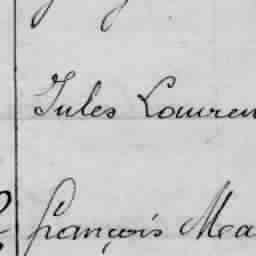 Jules Lauren
François Mea